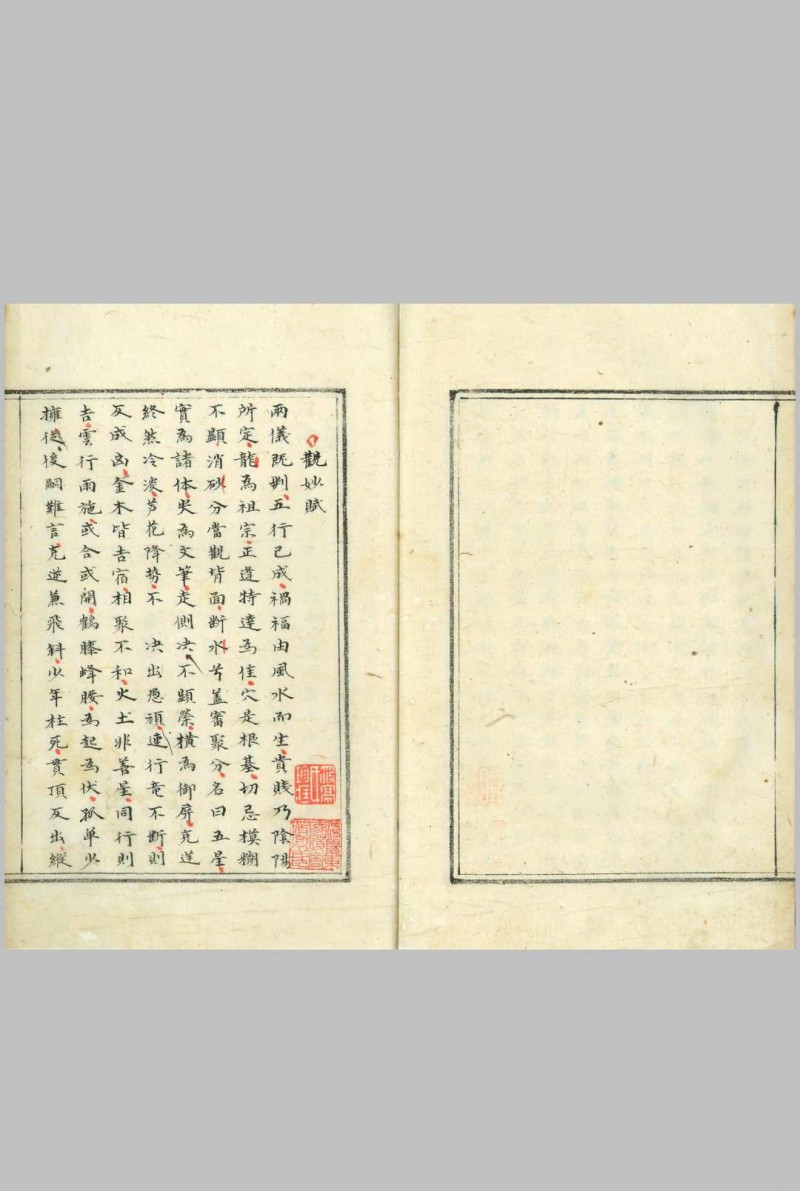 觀妙賦
兩儀既判五行已成禍福由風水而生貴賤乃陰陽
所定龍為祖宗正逆特達為佳穴是根基切忌模糊
不顯消砂分當觀背面斷水兮盖審聚分名曰五星
實為諸体尖為文筆走側決不顯榮橫為御屏克逆
終然冷淡芦花降势不 決出愚頑連行竜不斷則
反成凶金木皆吉宿相聚不和火土非善星同行則
吉雲行雨施或合或開鶴膝蜂腰為起為伏孤单少
擁從後嗣難言克逆兼飛斜少年枉死貫頂反出縱